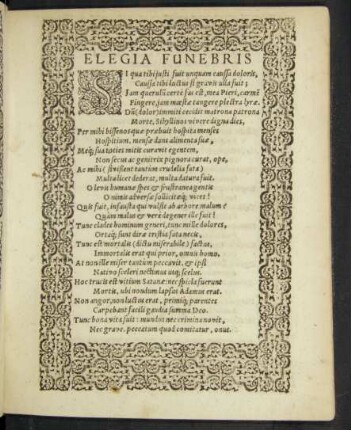 ELEGIA FUNEBRIS
SI qua tibi justi fuit unquam caussa doloris,
Caussa tibi luctus si gravis ulla fuit;
Jam querulū certè fas est, mea Pieri, carmē
Fingere, jam mæstæ tangere plectra lyræ.
Dū dolor immiti cecidit matrona patrona
Morte, Sibyllinos vivere digna dies,
Per mihi bissenos quæ præbuit hospita menses
Hospitium, mensæ dans alimenta suæ,
Meq́; suâ toties mitis curavit egentem,
Non secus ac genitrix pignora curat, ope,
At mihi (
Multa licet dederat, multa datura fuit.
O levis humanæ spes & frustranea gentis
O nimis adversæ sollicitæq́; vices!
Quis fuit, infausta qui vulsit ab arbore malum
Quàm malus & verè degener ille fuit!
Tunc clades hominum generi, tunc mille dolores,
Ortaq́; sunt diræ tristia fata necis,
Tunc est mortalis (dictu miserabile) factus,
Immortalis erat qui prior, omnis homo.
At non ille miser tantùm peccavit, & ipsi
Nativo sceleri nectimus usq; scelus.
Hoc trucis est vitium Satanæ: nec spicla fuerunt
Mortis, ubi nondum lapsus Adamus erat.
Non angor, non luctus erat, primiq́; parentes
Carpebant facili gaudia summa Deo.
Tunc bona vita fuit: mundus nec crimina novit,
Nec grave, peccatum quod comitatur, onus.